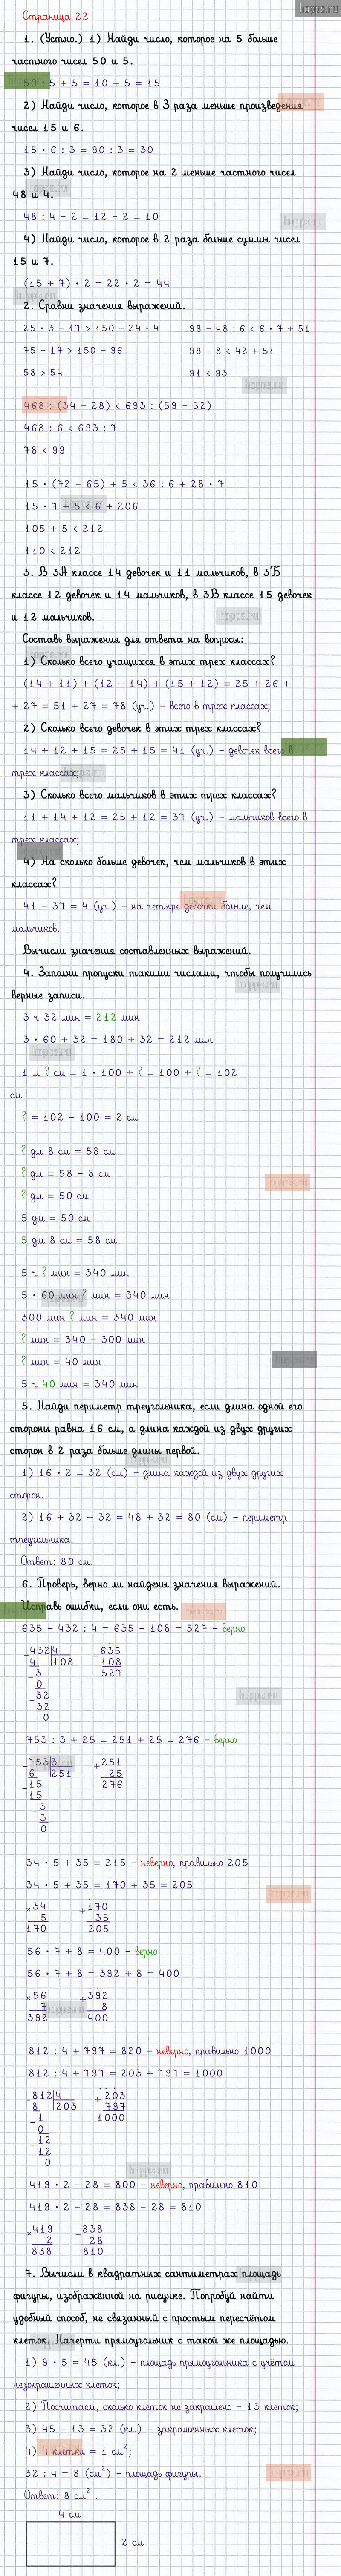 Страница 22
1. (Устно.) 1) Найди число, которое на 5 больше
частного чисел 50 и 5.
50 : 5 + 5 = 10 + 5 = 15
2) Найди число, которое в 3 раза меньше произведения
чисел 15 и 6.
15 · 6 : 3 = 90 : 3 = 30
3) Найди число, которое на 2 меньше частного чисел
48 и 4.
48 : 4 - 2 = 12 - 2 = 10
4) Найди число, которое в 2 раза больше суммы чисел
15 и 7.
(15 + 7) · 2 = 22 · 2 = 44
2. Сравни значения выражений.
25 · 3 - 17 > 150 - 24 · 4 99 - 48 : 6 < 6 · 7 + 51
75 - 17 > 150 - 96 99 - 8 < 42 + 51
58 > 54 91 < 93
468 : (34 - 28) < 693 : (59 - 52)
468 : 6 < 693 : 7
78 < 99
15 · (72 - 65) + 5 < 36 : 6 + 28 · 7
15 · 7 + 5 < 6 + 206
105 + 5 < 212
110 < 212
3. В 3А классе 14 девочек и 11 мальчиков, в 3Б
классе 12 девочек и 14 мальчиков, в 3В классе 15 девочек
и 12 мальчиков.
Составь выражения для ответа на вопросы:
1) Сколько всего учащихся в этих трех классах?
(14 + 11) + (12 + 14) + (15 + 12) = 25 + 26 +
+ 27 = 51 + 27 = 78 (уч.) - всего в трех классах;
2) Сколько всего девочек в этих трех классах?
14 + 12 + 15 = 25 + 15 = 41 (уч.) - девочек всего в
трех классах;
3) Сколько всего мальчиков в этих трех классах?
11 + 14 + 12 = 25 + 12 = 37 (уч.) - мальчиков всего в
трех классах;
4) На сколько больше девочек, чем мальчиков в этих
классах?
41 - 37 = 4 (уч.) - на четыре девочки больше, чем
мальчиков.
Вычисли значения составленных выражений.
4. Заполни пропуски такими числами, чтобы получились
верные записи.
3 ч 32 мин = 212 мин
3 · 60 + 32 = 180 + 32 = 212 мин
1 м ? см = 1 · 100 + ? = 100 + ? = 102
см
? = 102 - 100 = 2 см
? дм 8 см = 58 см
? дм = 58 - 8 см
? дм = 50 см
5 дм = 50 см
5 дм 8 см = 58 см
5 ч ? мин = 340 мин
5 · 60 мин ? мин = 340 мин
300 мин ? мин = 340 мин
? мин = 340 - 300 мин
? мин = 40 мин
5 ч 40 мин = 340 мин
5. Найди периметр треугольника, если длина одной его
стороны равна 16 см, а длина каждой из двух других
сторон в 2 раза больше длины первой.
1) 16 · 2 = 32 (см) - длина каждой из двух других
сторон.
2) 16 + 32 + 32 = 48 + 32 = 80 (см) - периметр
треугольника.
Ответ: 80 см.
6. Проверь, верно ли найдены значения выражений.
Исправь ошибки, если они есть.
635 - 432 : 4 = 635 - 108 = 527 - верно
-432|4 -635
4 |108 108
-3 527
0
-32
32
0
753 : 3 + 25 = 251 + 25 = 276 - верно
-753|3 +251
6 |251 25
-15 276
15
-3
3
0
34 · 5 + 35 = 215 - неверно, правильно 205
34 · 5 + 35 = 170 + 35 = 205
×34 +170
5 35
170 205
56 · 7 + 8 = 400 - верно
56 · 7 + 8 = 392 + 8 = 400
×56 +392
7 8
392 400
812 : 4 + 797 = 820 - неверно, правильно 1000
812 : 4 + 797 = 203 + 797 = 1000
-812|4 +203
8 |203 797
-1 1000
0
-12
12
0
419 · 2 - 28 = 800 - неверно, правильно 810
419 · 2 - 28 = 838 - 28 = 810
×419 -838
2 28
838 810
7. Вычисли в квадратных сантиметрах площадь
фигуры, изображённой на рисунке. Попробуй найти
удобный способ, не связанный с простым пересчётом
клеток. Начерти прямоугольник с такой же площадью.
1) 9 · 5 = 45 (кл.) - площадь прямоугольника с учётом
незакрашенных клеток;
2) Посчитаем, сколько клеток не закрашено - 13 клеток;
3) 45 - 13 = 32 (кл.) - закрашенных клеток;
4) 4 клетки = 1 см²;
32 : 4 = 8 (см²) - площадь фигуры.
Ответ: 8 см².
4 см
2 см